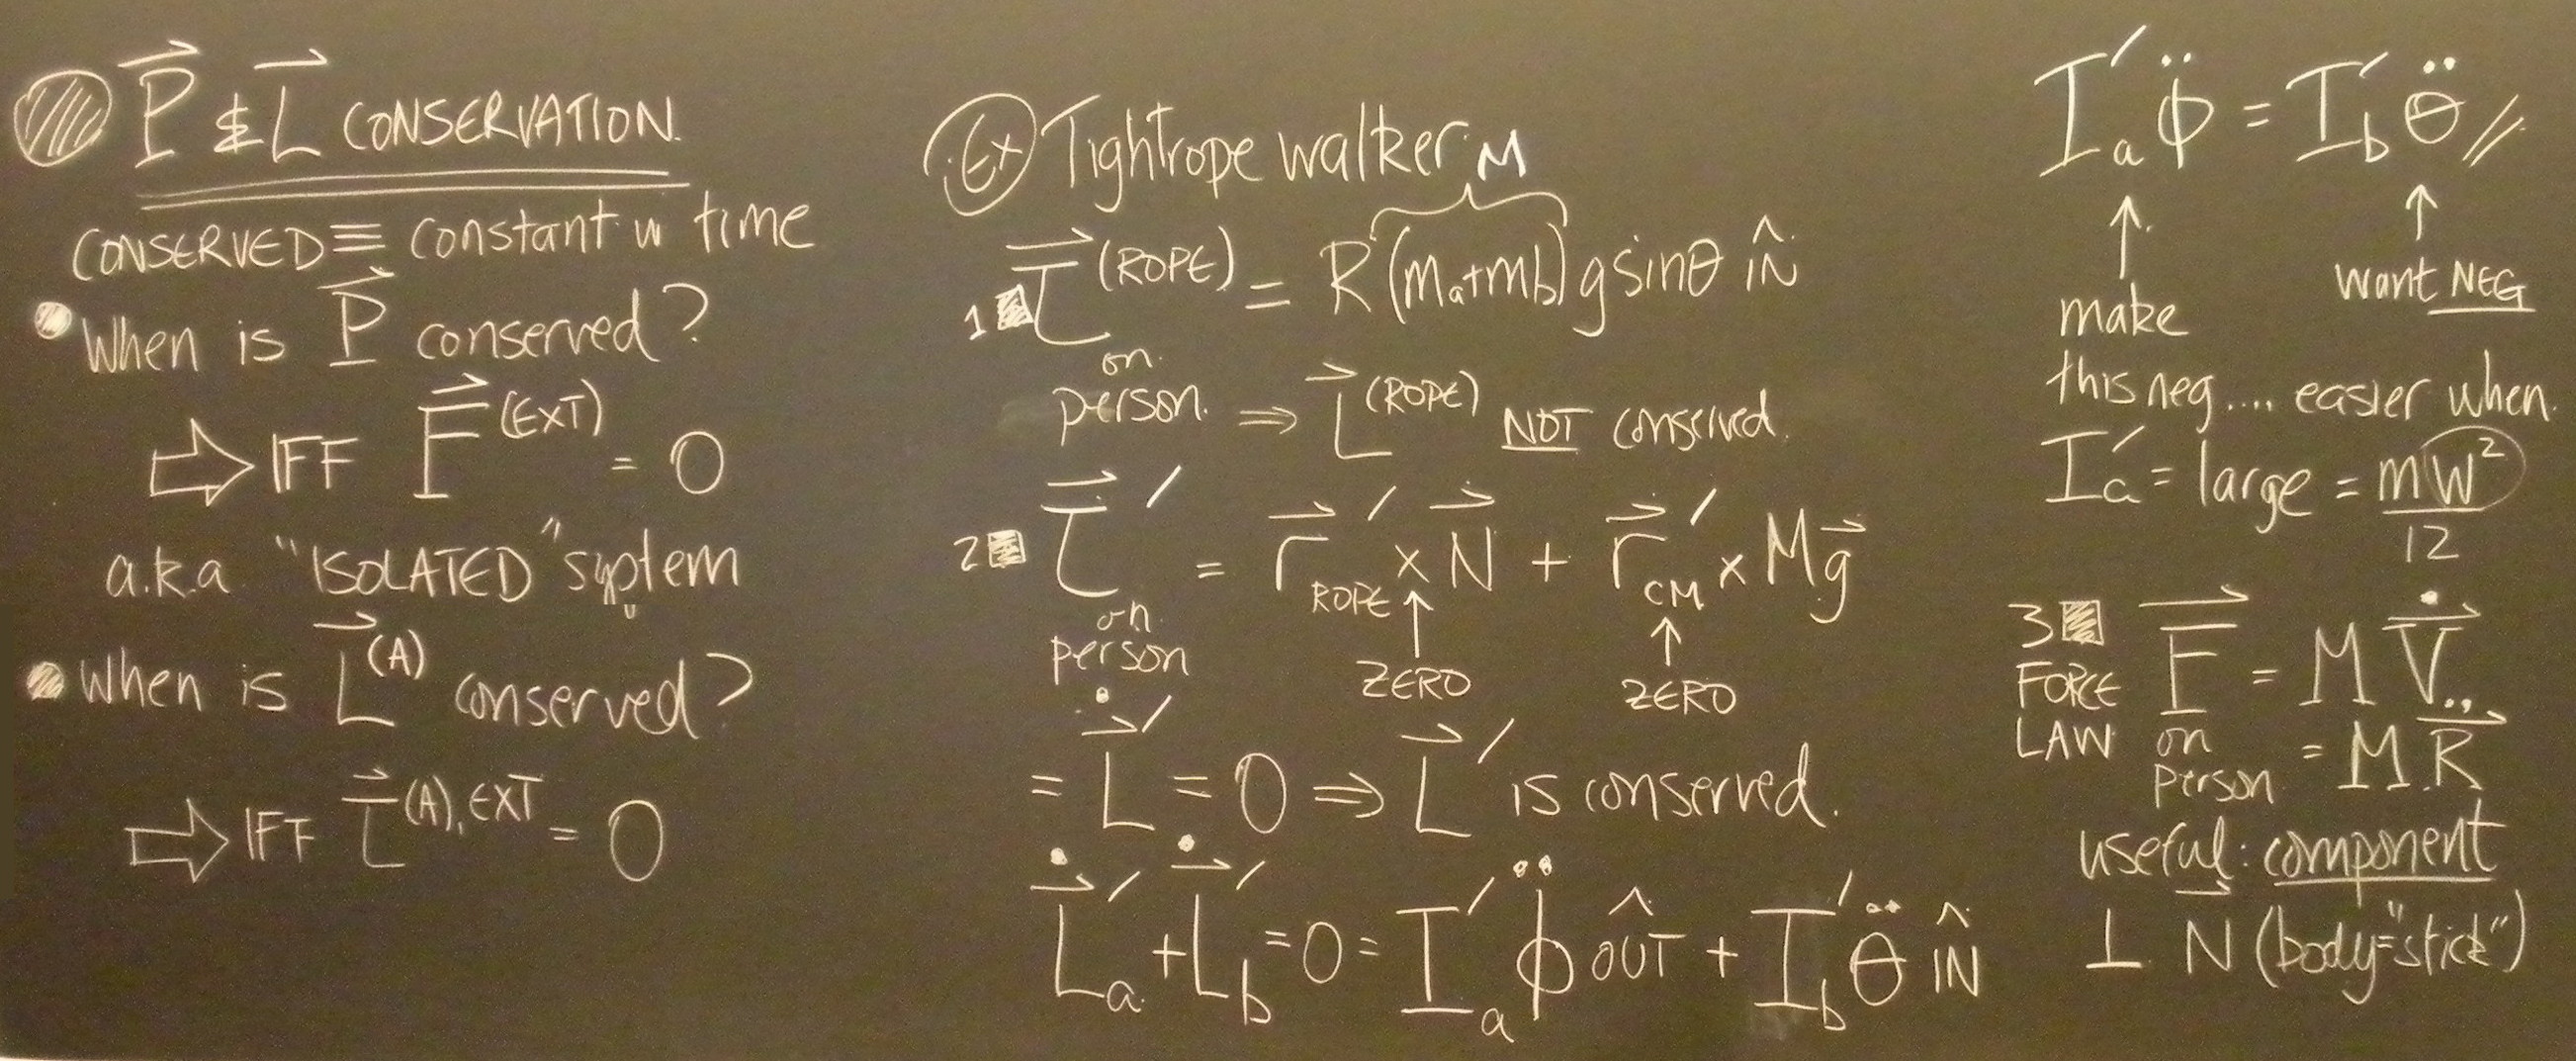 P⃗ & L⃗ CONSERVATION
CONSERVED ≡ constant w time
When is P⃗ conserved?
⇒ IFF F⃗^(EXT) = 0
a.k.a "ISOLATED" system
When is L⃗^(A) conserved?
⇒ IFF τ⃗^(A),EXT = 0
Ex Tightrope walker M
1 τ⃗^(ROPE) = R(ma+mb)g sinθ IN^
on
person ⇒ L⃗^(ROPE) NOT conserved.
2 τ⃗′ = r⃗′ROPE × N⃗ + r⃗′CM × Mg⃗
on
person ↑ ZERO ↑ ZERO
= L⃗̇′ = 0 ⇒ L⃗′ is conserved.
L⃗̇′a + L⃗̇′b = 0 = I′a ϕ̈ OUT^ + I′b θ̈ IN^
I′a ϕ̈ = I′b θ̈ //
↑ ↑
want NEG
make
this neg.... easier when
I′a = large = mW²/12
3 F⃗ = M V⃗̇
FORCE
LAW on = M R⃗̈
person
useful: component
⊥ N⃗ (body="stick")